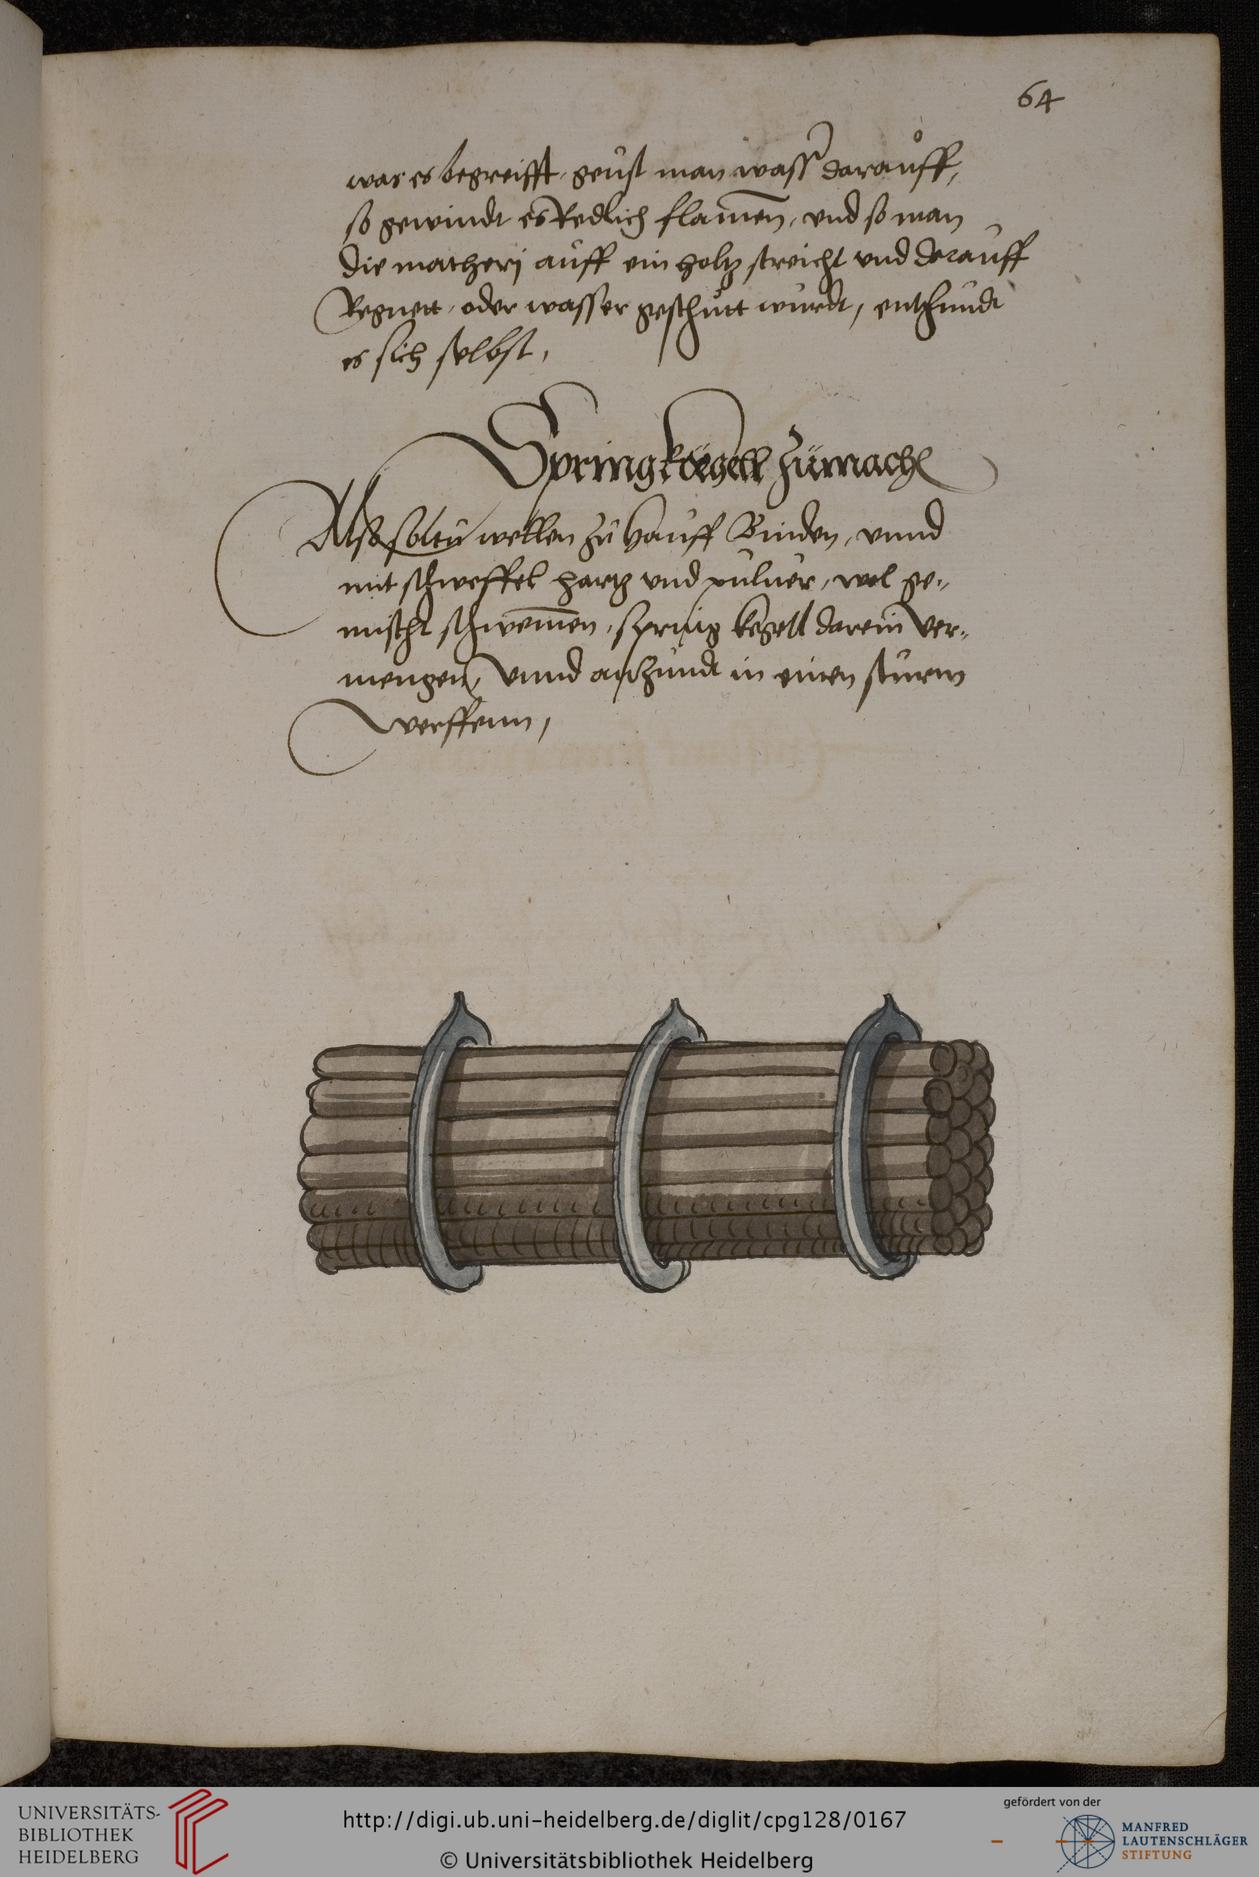 64
was es begreifft, geust man wasser darauff,
so gewindt es Redlich flamen, vnd so man
die matherj auff ein holtz streicht vnd darauff
Regnett, oder wasser geschütt würdt, entzündt
es sich selbst,
Spring kegell zümachen
Also soltu wellen zu hauff Binden, vnnd
mit schweffel hartz vnd puluer, wol ge-
mischt schwemen, spring kegell darein ver-
mengen, Vnnd anzündt in einen sturm
werffenn,
UNIVERSITÄTS-
BIBLIOTHEK
HEIDELBERG
http://digi.ub.uni-heidelberg.de/diglit/cpg128/0167
© Universitätsbibliothek Heidelberg
gefördert von der
MANFRED
LAUTENSCHLÄGER
STIFTUNG